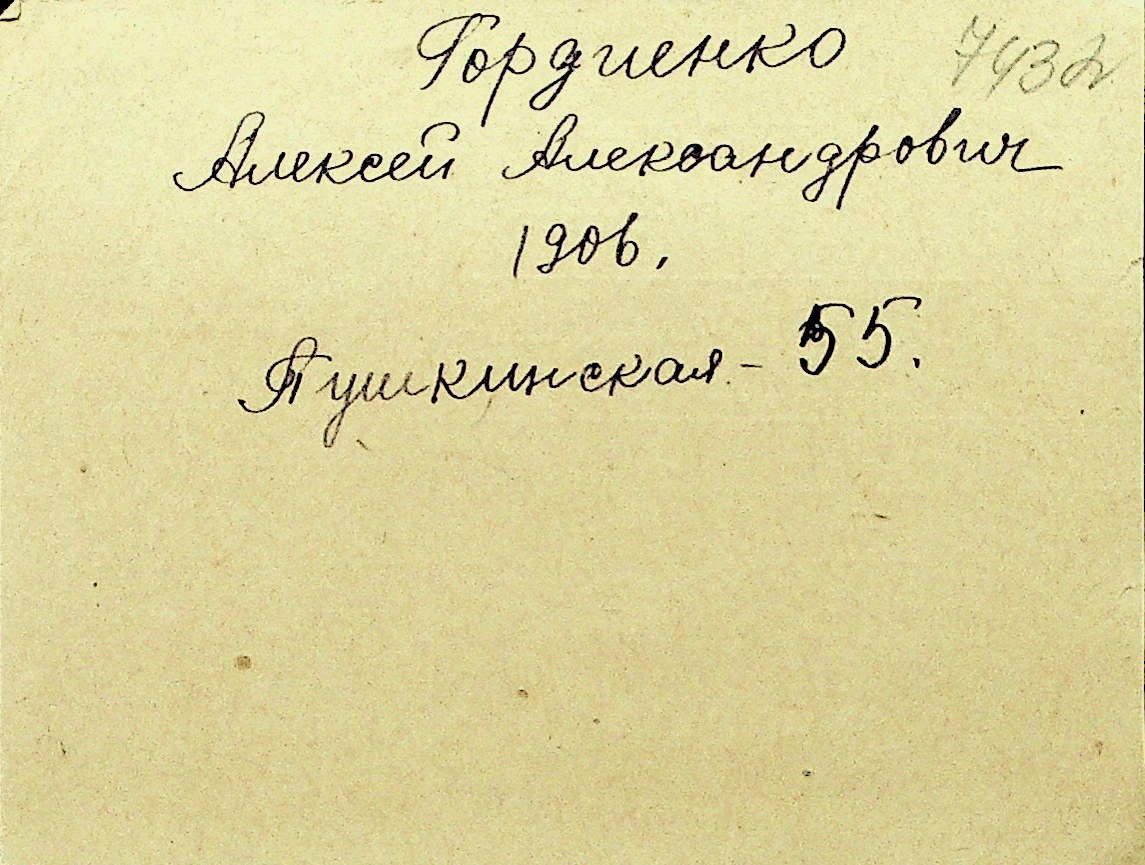 Гордиенко 7432
Алексей Александрович
1906.
Пушкинская - 55.